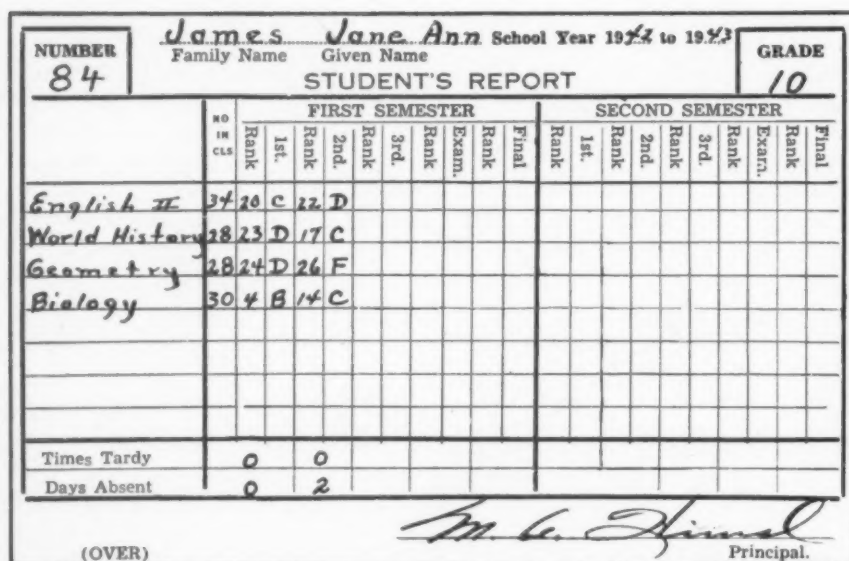 NUMBER
84
James Jane Ann School Year 1942 to 1943
Family Name Given Name
GRADE
10
STUDENT'S REPORT
FIRST SEMESTER SECOND SEMESTER
NO IN CLS Rank 1st. Rank 2nd. Rank 3rd. Rank Exam. Rank Final Rank 1st. Rank 2nd. Rank 3rd. Rank Exam. Rank Final
English II 34 20 C 22 D
World History 28 23 D 17 C
Geometry 28 24 D 26 F
Biology 30 4 B 14 C
Times Tardy 0 0
Days Absent 0 2
(OVER) Principal.